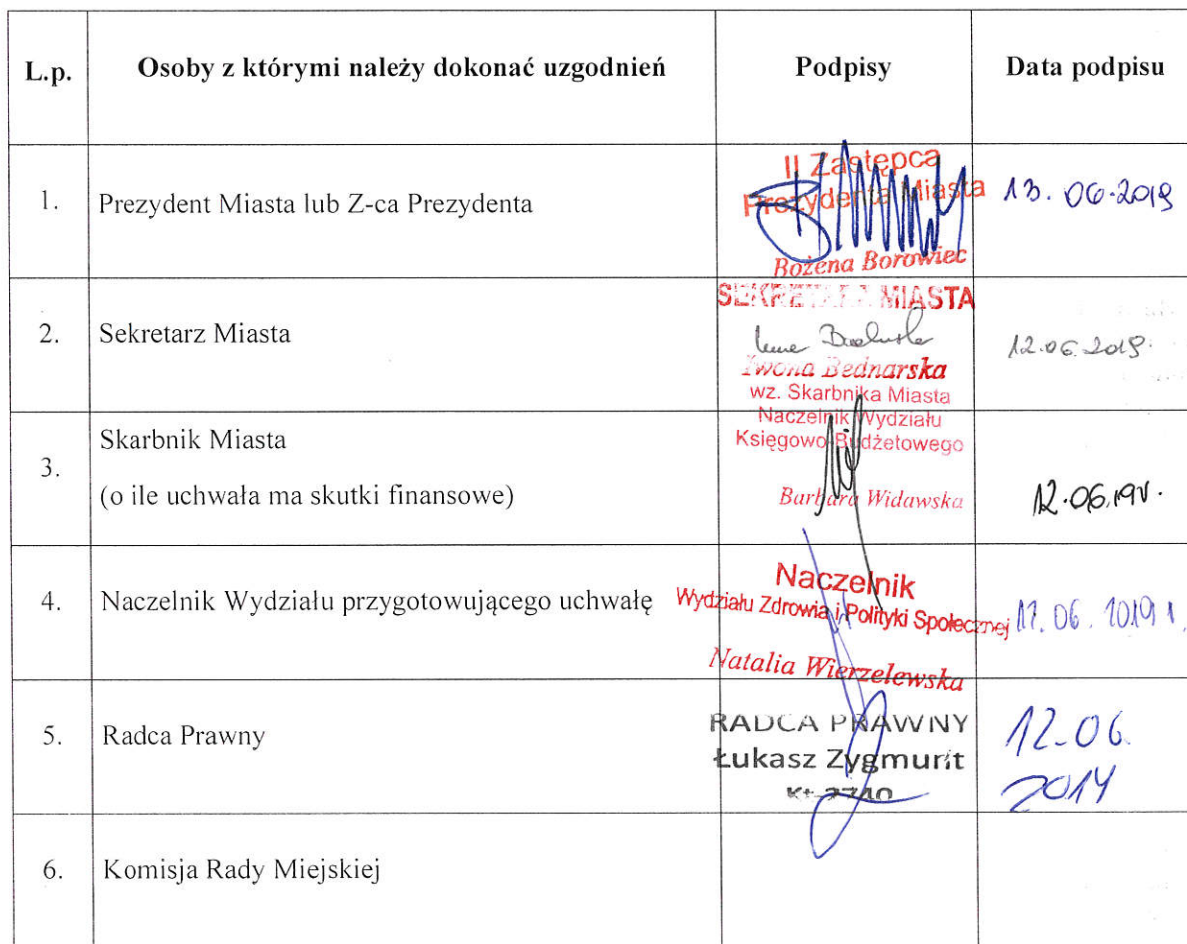 L.p. Osoby z którymi należy dokonać uzgodnień Podpisy Data podpisu
1. Prezydent Miasta lub Z-ca Prezydenta
II Zastępca
Prezydenta Miasta
Bożena Borowiec
13.06.2019
2. Sekretarz Miasta
SEKRETARZ MIASTA
Iwona Bednarska
12.06.2019
3. Skarbnik Miasta
(o ile uchwała ma skutki finansowe)
wz. Skarbnika Miasta
Naczelnik Wydziału
Księgowo-Budżetowego
Barbara Widawska
12.06.19r.
4. Naczelnik Wydziału przygotowującego uchwałę
Naczelnik
Wydziału Zdrowia i Polityki Społecznej
Natalia Wierzelewska
12.06.2019 r.
5. Radca Prawny
RADCA PRAWNY
Łukasz Zygmunt
Kt-2740
12-06.
2019
6. Komisja Rady Miejskiej